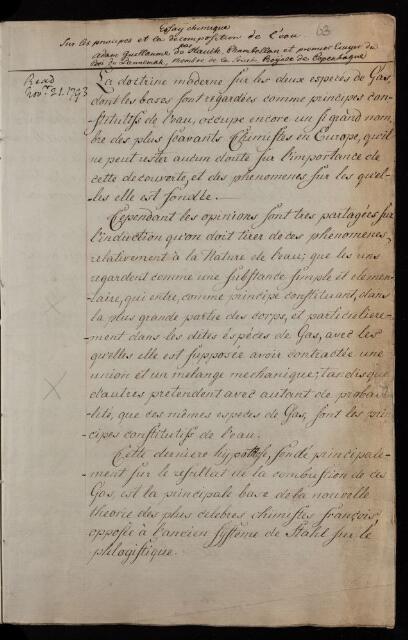 Essay chimique
Sur les principes et la décomposition de l'eau
par
Adam Guillaume de Hauch, Chambellan et premier Ecuyer du
Roi de Dannemark, Membre de la Societé Royale de Copenhague
63
Read
Novr. 21. 1793
La doctrine moderne sur les deux especes de Gas,
dont les bases sont regardées comme principes con-
-stitutifs de l'eau, occupe encore un si grand nom-
bre des plus sçavants Chimistes en Europe, qu'il
ne peut rester aucun doute sur l'importance de
cette decouverte, et des phenomenes sur les quel-
-les elle est fondée.
Cependant les opinions sont tres partagées sur
l'induction qu'on doit tirer de ces phenomenes,
relativement à la Nature de l'eau; que les uns
regardent comme une substance simple et elemen-
-taire, qui entre, comme principe constituant, dans
la plus grande partie des corps, et particuliere-
-ment dans les dites éspèces de Gas, avec les
quelles elle est supposée avoir contractée une
union et un melange mechanique; tandisque
d'autres pretendent avec autant de probabi-
-lité, que ces mêmes especes de Gas, sont les prin-
-cipes constitutifs de l'eau.
Cette derniere hypothese, fondé principale-
-ment sur le resultat de la combustion de ces
Gas, est la principale base de la nouvelle
theorie des plus celebres chimistes françois,
opposée à l'ancien système de Stahl sur le
phlogistique.